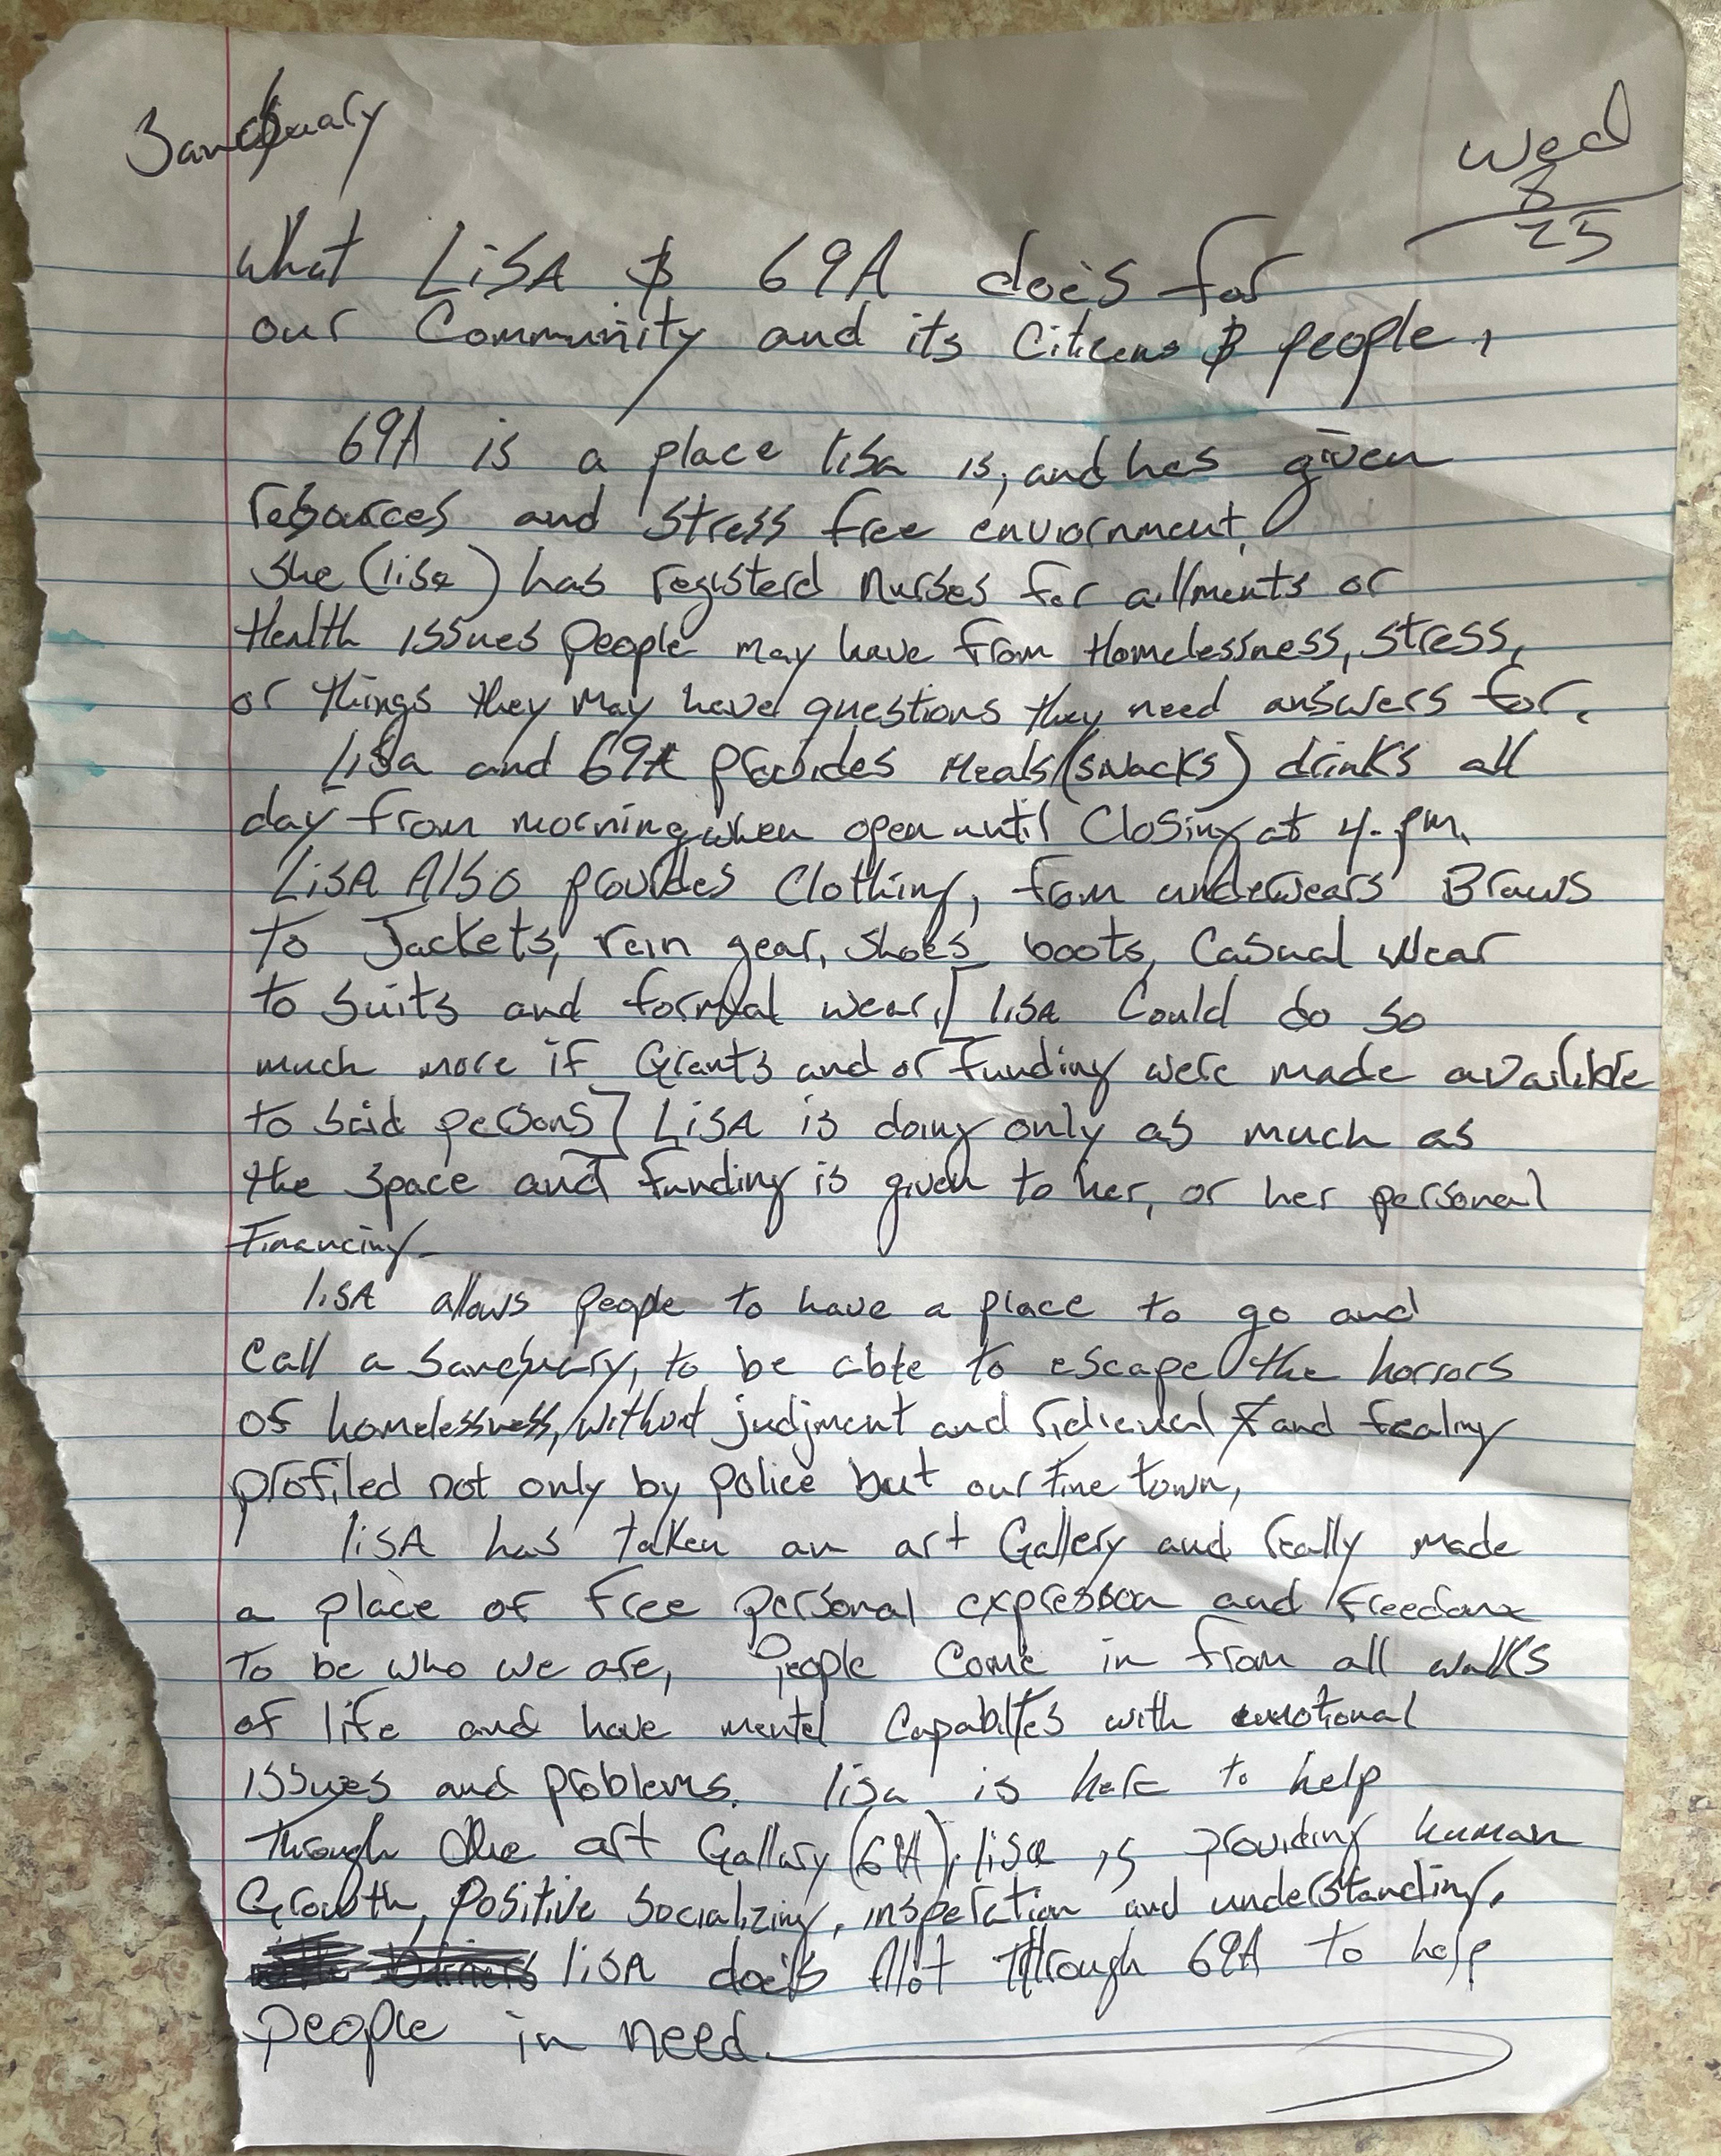 Sanctuary
Wed
8
25
What LiSA & 69A doe's for
our Community and its Citizens & people,
69A is a place lisa is, and has given
resources and stress free enviornment.
She (lisa) has registerd Nurses for ailments or
Health issues people may have from Homelessness, stress,
or things they may have questions they need answers for.
Lisa and 69A provides Meals (snacks) drinks all
day from morning when open until Closing at 4. pm.
LiSA Also provides Clothing, from underwears Braws
To Jackets, rein gear, shoes boots, Casual Wear
to suits and formal wear, [lisa Could do so
much more if Grants and or Funding were made available
to said persons] LiSA is doing only as much as
the space and funding is given to her, or her personal
Financing-
liSA allows people to have a place to go and
Call a Sanctuary, to be able to escape the horrors
of homelessness, without judjment and and fealing
profiled not only by police but our fine town,
liSA has taken an art Gallery and really made
a place of free personal expression and freedom
To be who we are, People Come in from all walks
of life and have mentel Capabiltes with emotional
issues and problems. lisa is here to help
Through the art Gallary (69A), lisa is providing human
Growth, Positive Socializing, insperation and understanding.
liSA doe's Allot Through 69A to help
people in need.